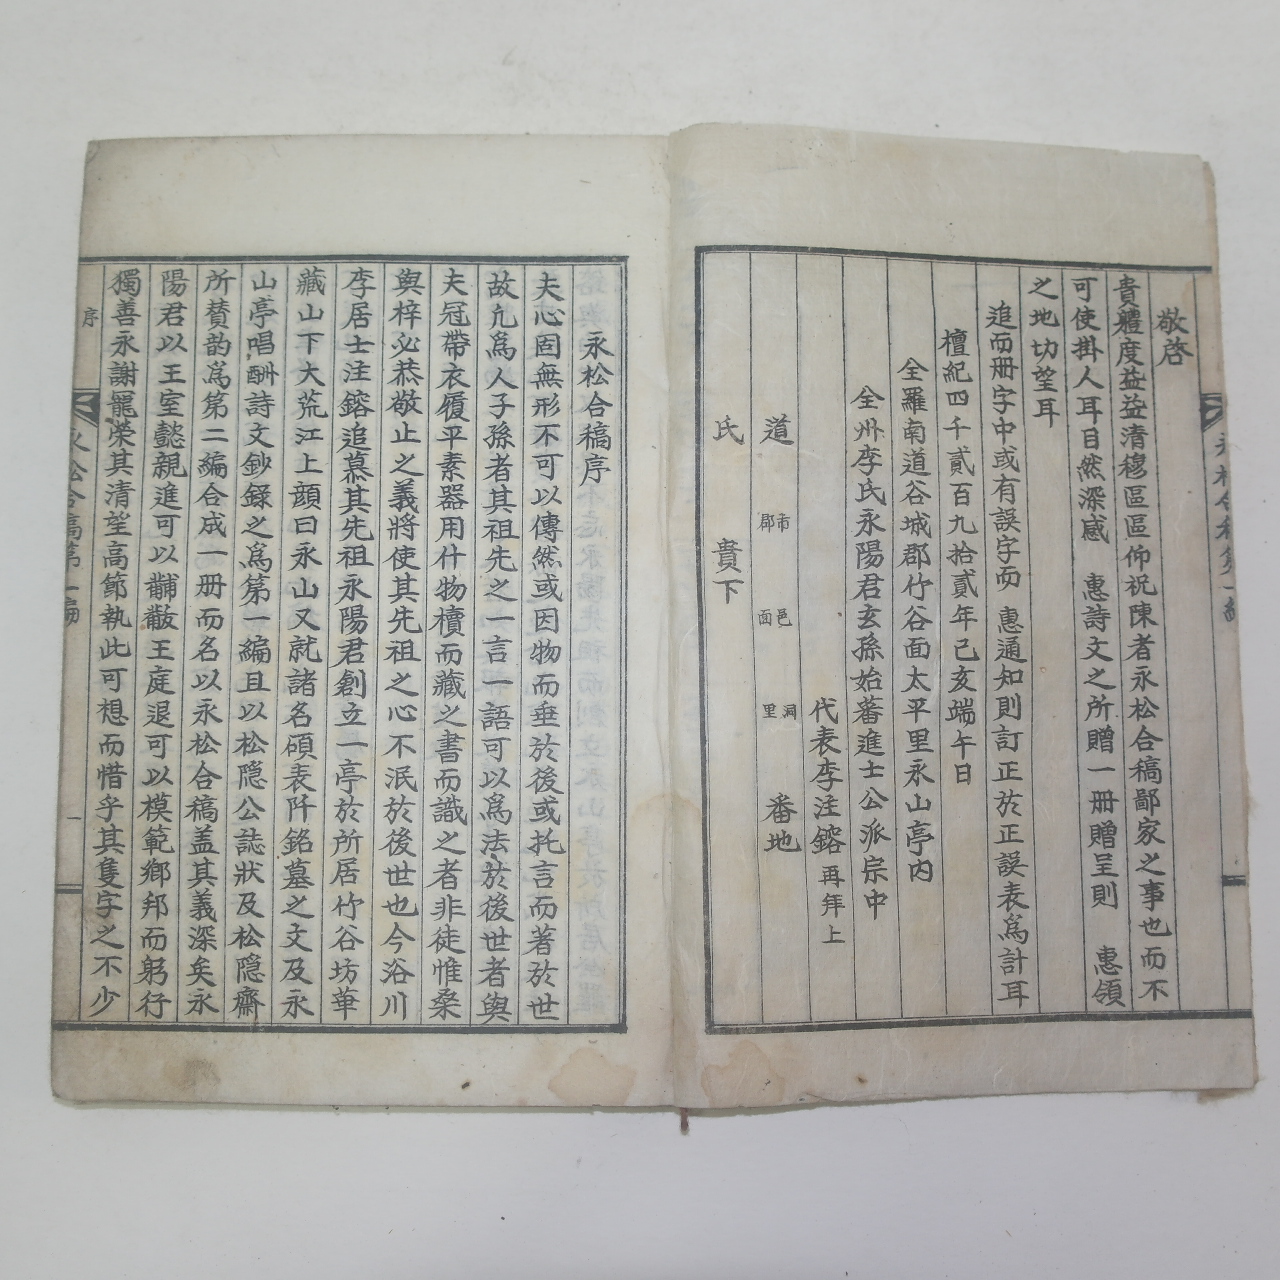 敬啓
貴軆度益益清穆區區仰祝陳者永松合稿鄙家之事也而不
可使掛人耳目然深感　惠詩文之所贈一册贈呈則　惠領
之地切望耳
追而册字中或有誤字而　惠通知則訂正於正誤表爲計耳
檀紀四千貳百九拾貳年己亥端午日
全羅南道谷城郡竹谷面太平里永山亭内
全州李氏永陽君玄孫始蕃進士公派宗中
代表李注鎔再拜上
道　市郡　邑面　洞里　番地
氏　貴下
永松合稿序
夫心固無形不可以傳然或因物而垂於後或托言而著於世
故凢爲人子孫者其祖先之一言一語可以爲法於後世者與
夫冠帶衣履平素器用什物櫝而藏之書而識之者非徒惟桑
與梓必恭敬止之義將使其先祖之心不泯於後世也今浴川
李居士注鎔追慕其先祖永陽君創立一亭於所居竹谷坊華
藏山下大荒江上顔曰永山又就諸名碩表阡銘墓之文及永
山亭唱酬詩文鈔錄之爲第一編且以松隱公誌狀及松隱齋
所賛韵爲第二編合成一册而名以永松合稿盖其義深矣永
陽君以王室懿親進可以黼黻王庭退可以模範鄉邦而躬行
獨善永謝寵荣其清望高節執此可想而惜乎其隻字之不少
序
永松合稿第一編
一